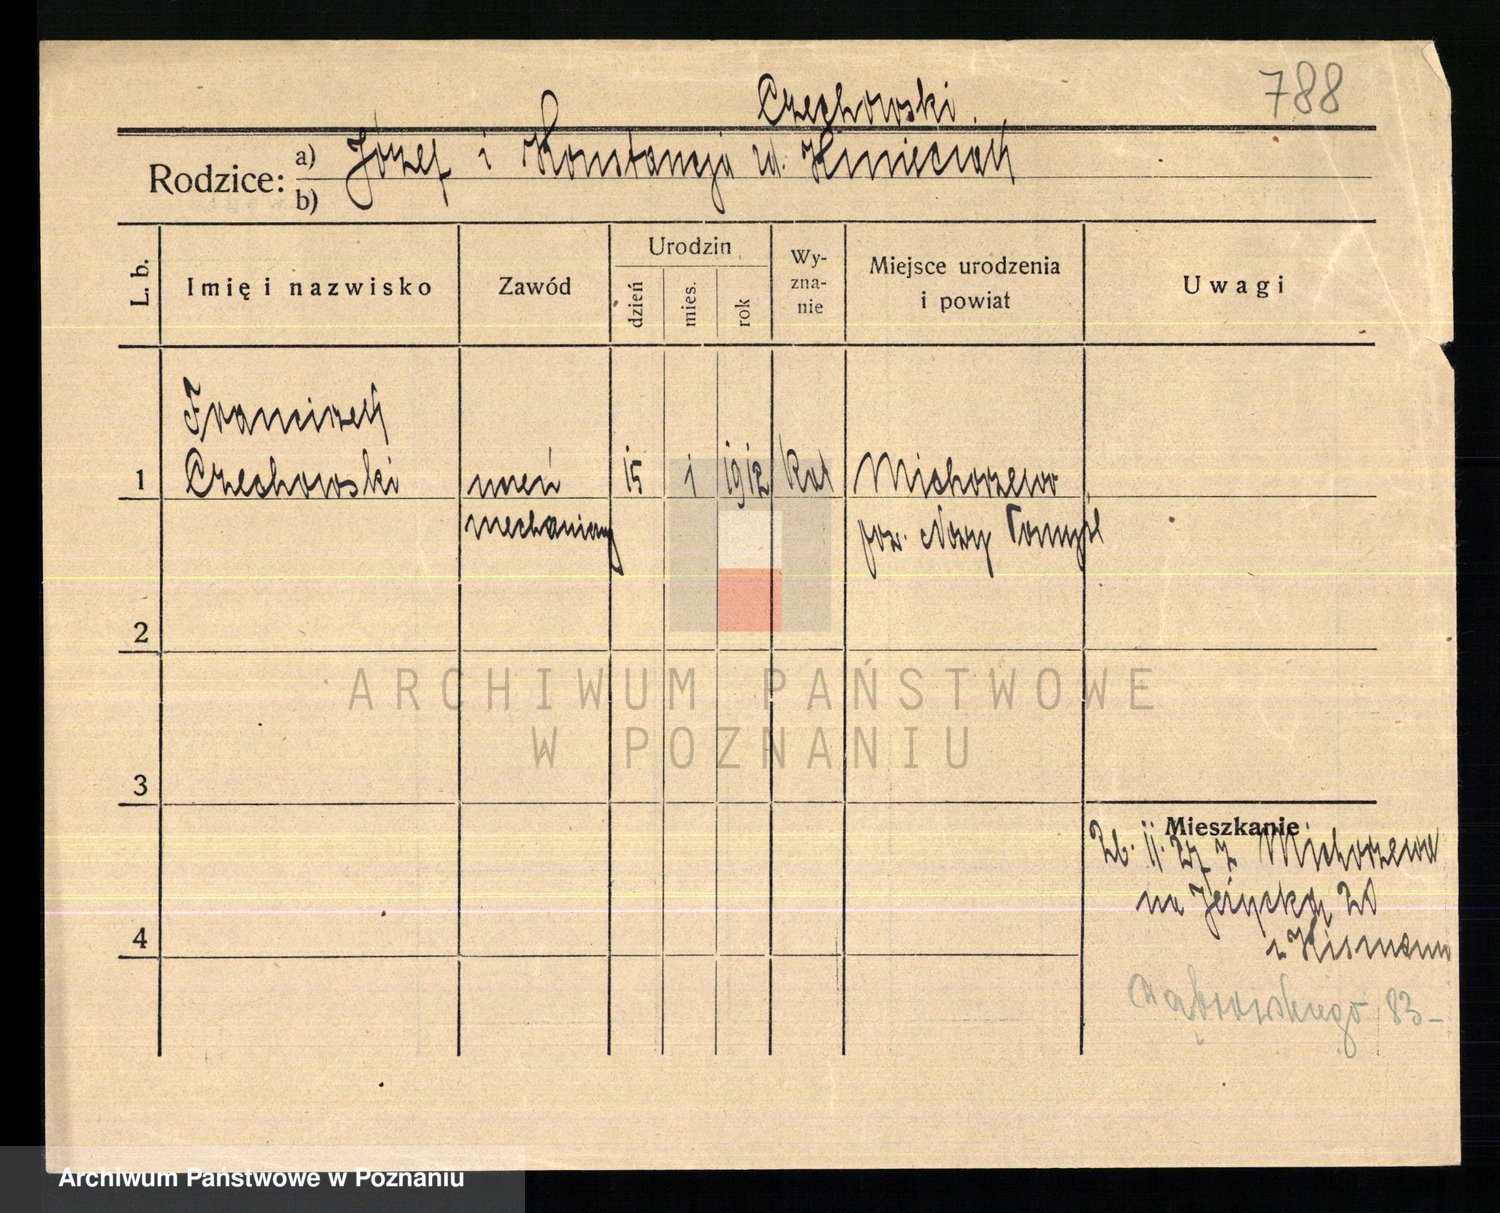 788
Czechowski
Rodzice: a) Józef i Konstancja Kmieciak
b)
L. b. Imię i nazwisko Zawód Urodzin dzień mies. rok Wy-zna-nie Miejsce urodzenia i powiat Uwagi
Franciszek
1 Czechowski uczeń 15 1 1912 Kat Michorzewo
mechaniczny pow. Nowy Tomyśl
2
ARCHIWUM PAŃSTWOWE
W POZNANIU
3
Mieszkanie
26. 11. 27 z Michorzewa
na Jeżycką 20
Dąbrowskiego 83-
4
Archiwum Państwowe w Poznaniu